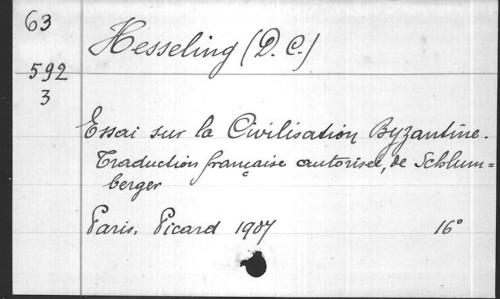 63
Hesseling (D. C.)
592
3
Essai sur la Civilisation Byzantine.
Traduction française autorisée, de Schlum=
berger
Paris, Picard 1907
16°